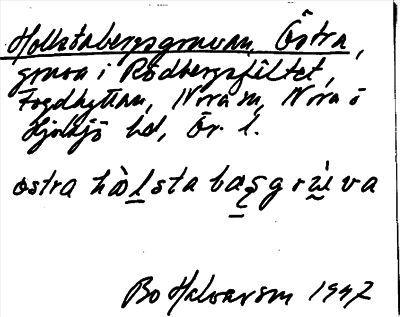 Hollstabergsgruvan, Östra,
gruva i Rödbergsfältet,
Fogdhyttan, Nora sn, Nora o
Hjulsjö hd, Ör. l.
östra hòlsta bæsgrùva
Bo Halvarsson 1947